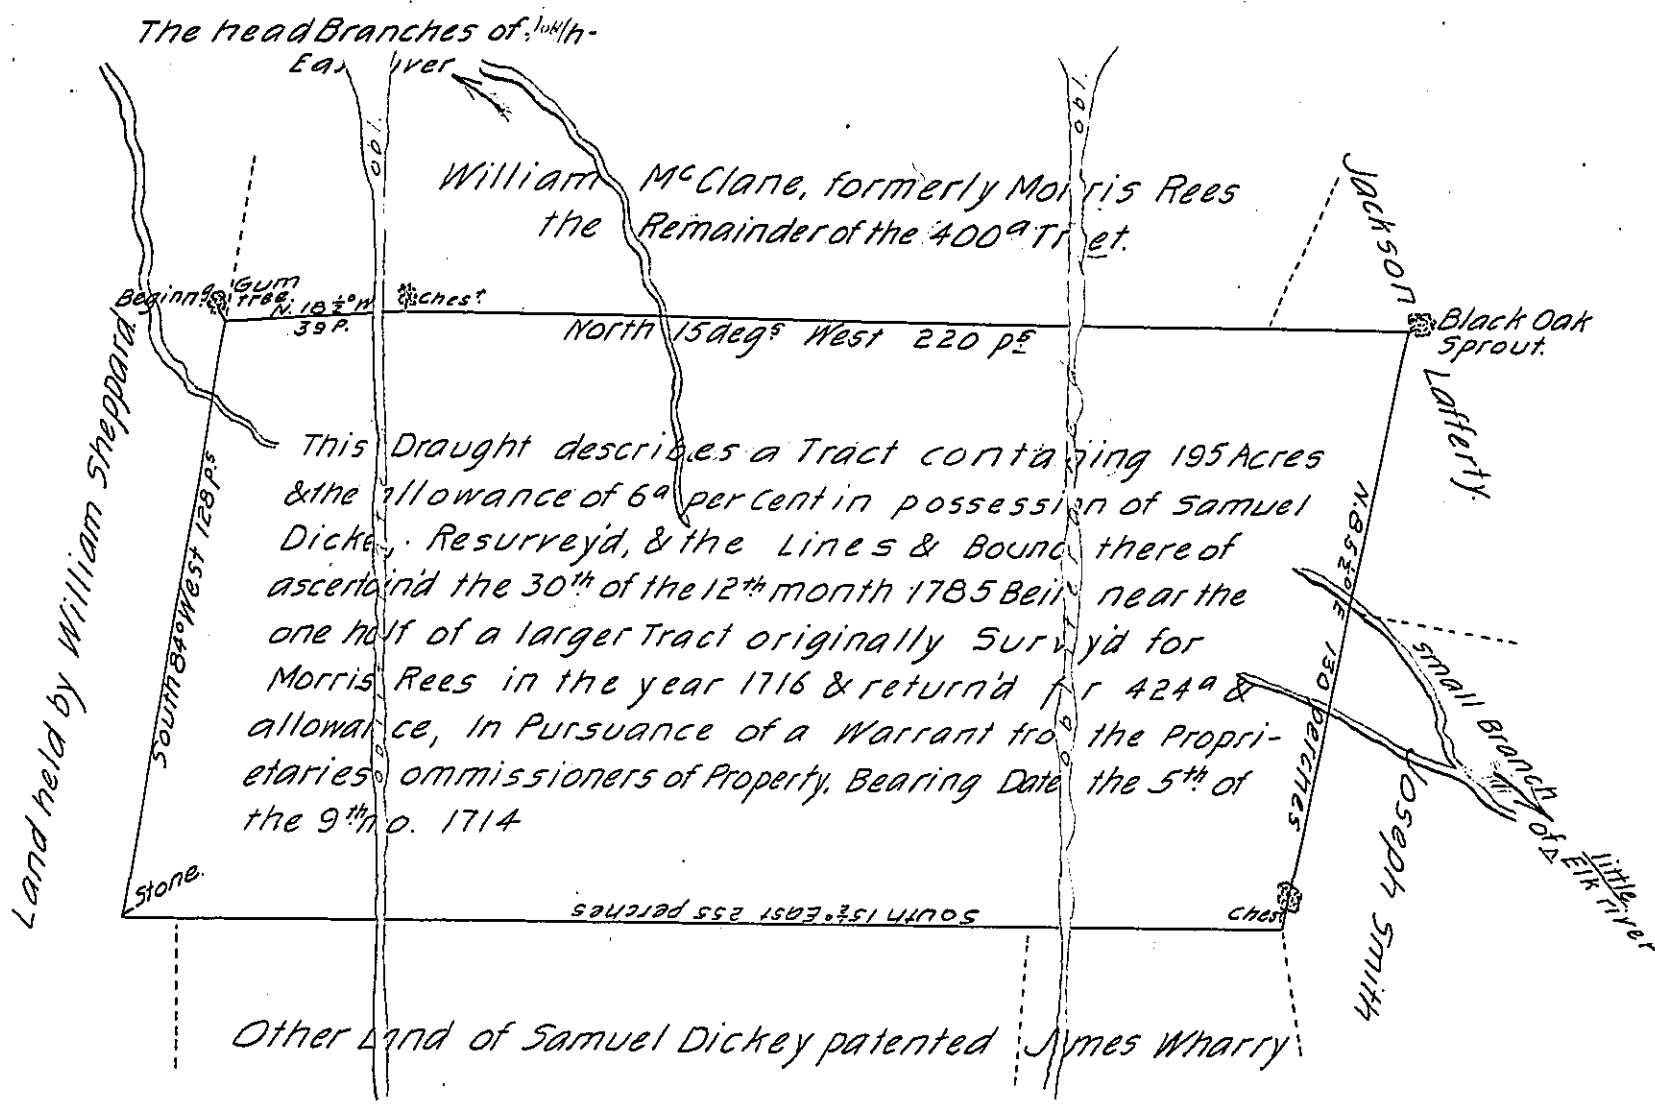 The head Branches of
William McClane, formerly Morris Rees
the Remainder of the 400a Tr et.
Jackson
Beginng Gum
tree.
N. 18½° W
39 P.
Chest
North 15 degs West 220 ps
Black Oak
Sprout.
Lafferty.
Land held by William Sheppard.
South 84° West 128 ps
This Draught describes a Tract conta ing 195 Acres
& the allowance of 6a per Cent in possession of Samuel
Dicke . Resurvey'd, & the Lines & Bound there of
ascertain'd the 30th of the 12th month 1785 Bei near the
one half of a larger Tract originally Surv y'd for
Morris Rees in the year 1716 & return'd f r 424a &
allowan ce, In Pursuance of a Warrant fro the Propri-
etaries ommissioners of Property. Bearing Date the 5th of
the 9th mo. 1714
N. 85½° E 130 perches
small Branch
of
little
Elk river
Joseph Smith
Stone.
South 15½° East 255 perches
Chest
Other Land of Samuel Dickey patented
James Wharry